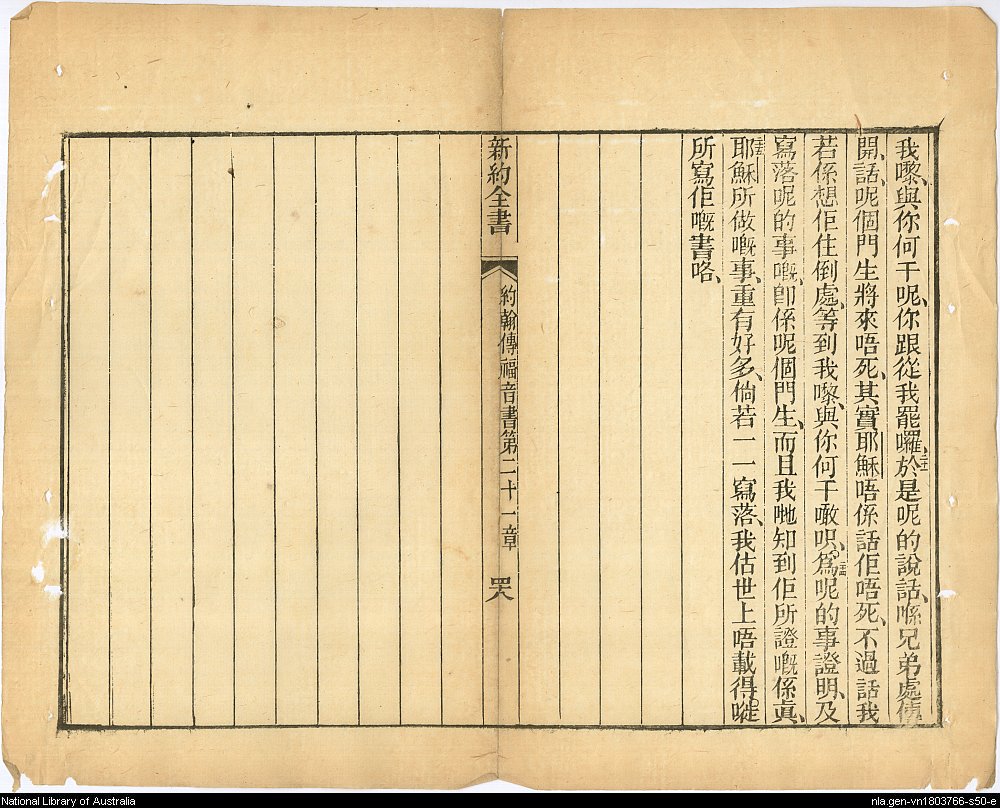 我嚟、與你何干呢、你跟從我罷囉、
三
於是呢的說話、喺兄弟處傳
開、話、呢個門生將來唔死、其實耶穌唔係話佢唔死、不過話我
若係想佢住倒處、等到我嚟、與你何干噉呮。
爲呢的事證明、及
寫落呢的事嘅、卽係呢個門生、而且我哋知到佢所證嘅係眞、
耶穌所做嘅事、重有好多、倘若一一寫落、我估世上唔載得嘥
所寫佢嘅書咯、
新約全書
約翰傳福音書第二十一章
四八
National Library of Australia
nla.gen-vn1803766-s50-e